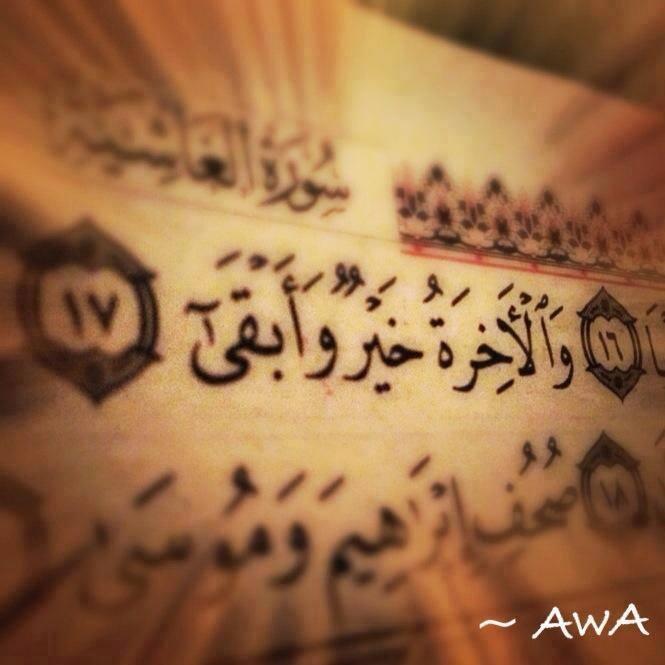 سُورَةُ الغَاشِيَةِ
ا ١٦ وَٱلْأَخِرَةُ خَيْرٌ وَأَبْقَىٰٓ ١٧
١٨ صُحُفِ إِبْرَاهِيمَ وَمُوسَىٰ
~ AWA